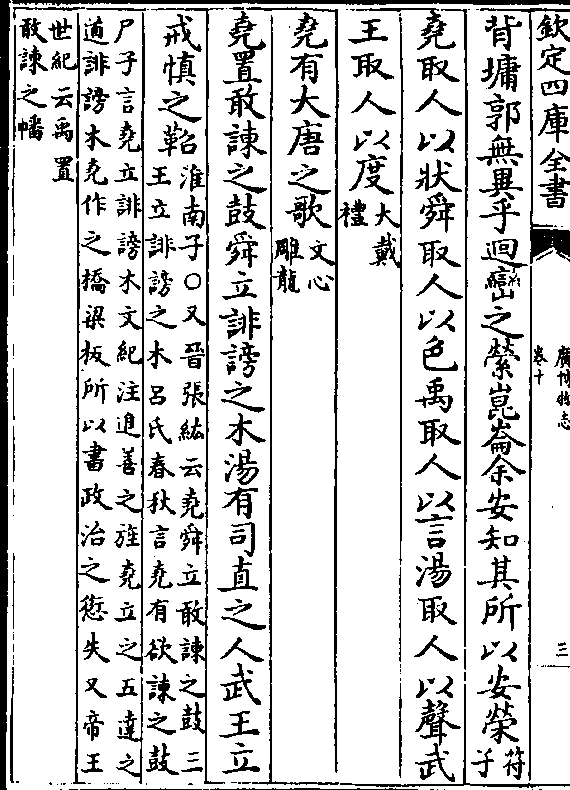 欽定四庫全書
廣博物志
卷十
三
背墉郭無異乎迴巒之縈崑崙余安知其所以安榮符子
堯取人以狀舜取人以色禹取人以言湯取人以聲武
王取人以度大戴禮
堯有大唐之歌文心雕龍
堯置敢諫之鼓舜立誹謗之木湯有司直之人武王立
戒慎之鞀淮南子○又晉張紘云堯舜立敢諫之鼓三
王立誹謗之木呂氏春秋言堯有欲諫之鼓
尸子言堯立誹謗木文紀注進善之旌堯立之五達之
道誹謗木堯作之橋梁板所以書政治之愆失又帝王
世紀云禹置
敢諫之幡